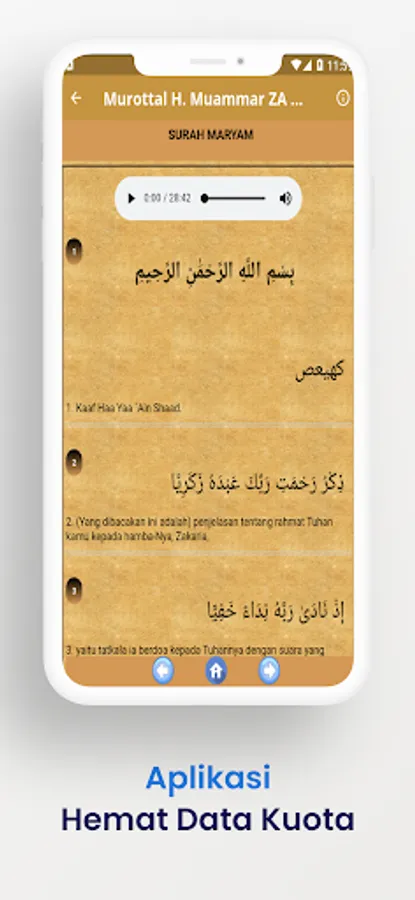 11:5
Murottal H. Muammar ZA ...
SURAH MARYAM
0:00 / 28:42
1
بِسْمِ اللَّهِ الرَّحْمَٰنِ الرَّحِيمِ
كهيعص
1. Kaaf Haa Yaa `Ain Shaad.
2
ذِكْرُ رَحْمَتِ رَبِّكَ عَبْدَهُ زَكَرِيَّا
2. (Yang dibacakan ini adalah) penjelasan tentang rahmat Tuhan
kamu kepada hamba-Nya, Zakaria,
3
إِذْ نَادَىٰ رَبَّهُ نِدَاءً خَفِيًّا
3. yaitu tatkala ia berdoa kepada Tuhannya dengan suara yang
Aplikasi
Hemat Data Kuota